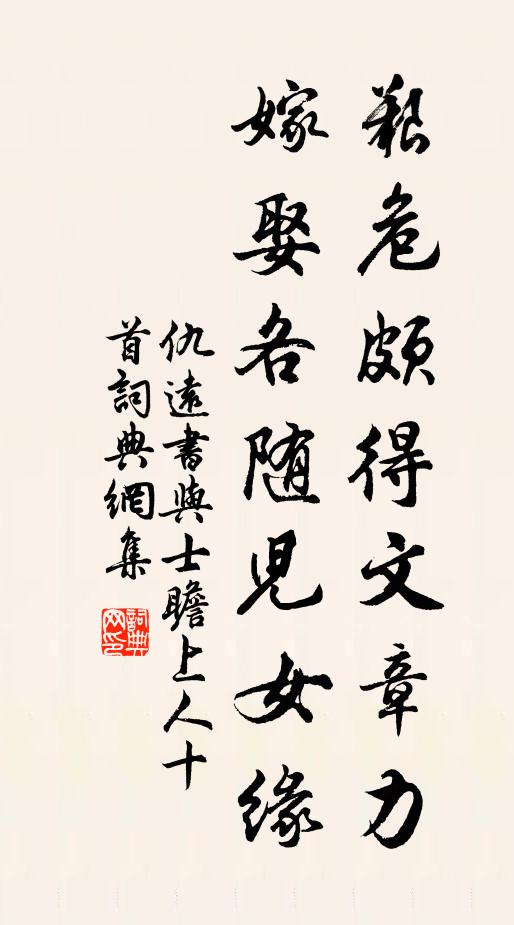 艱危頗得文章力
嫁娶各随兒女緣
仇遠書與士瞻上人十
首詞典網集
詞典網印